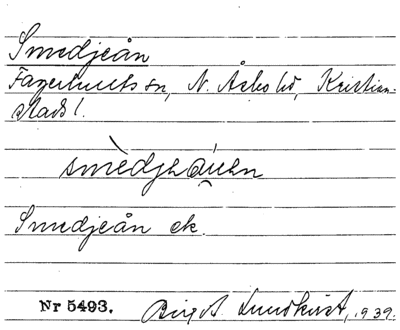 Smedjeån
Fagerhults sn, N. Åsbo hd, Kristian-
stads l.
Smedjeån ek.
Nr 5493. Birgit Lundkvist, 1939.